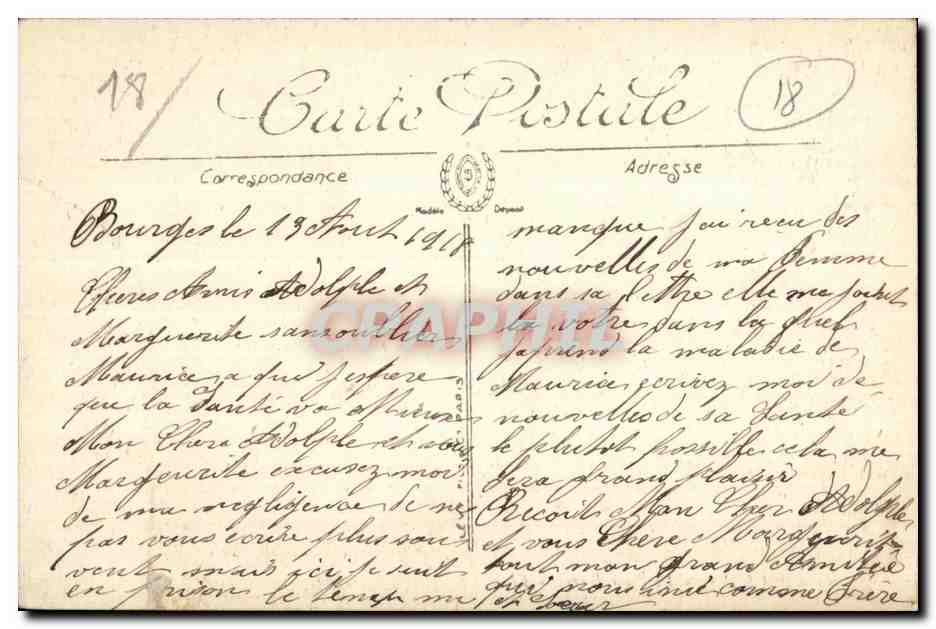 18/
18
Carte Postale
Correspondance
Adresse
Modèle Déposé
Bourges le 13 Aout 1918
Cheres Amis Adolple et
Marguerite sans oullier
Maurice a qui j'espere
que la Santé va Mieux
Mon Cher Adolple et vous
Marguerite excusez moi
de ma negligence de ne
pas vous ecrire plus sou
vent mais ici je suit
en prison le temps me
manque j'ai recu des
nouvelles de ma Femme
dans sa lettre elle me joint
la votre dans la quel
japrend la maladie de
Maurice ecrivez moi de
nouvelles de sa Santé
le plutot possille cela me
fera grand plaisir
Recoit Mon Cher Adolple
et vous Chere Marguerite
tout mon grand Amitié
qui nous unie comme Frère
et Sœur
PARIS
CPAPHIL